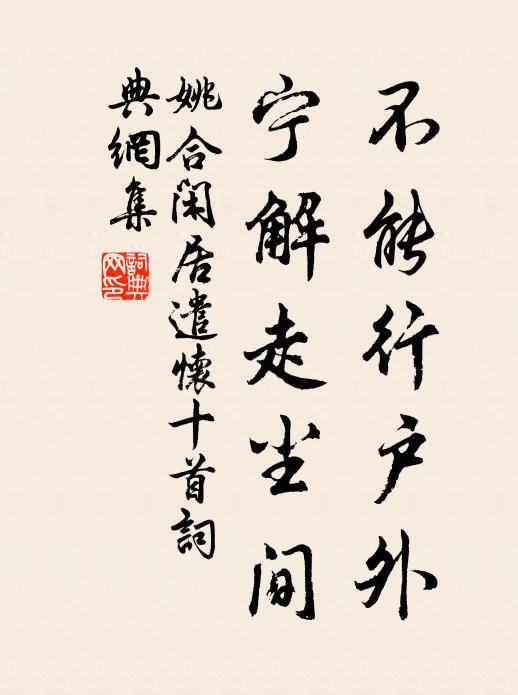 不能行户外
宁解走尘间
姚合闲居遣懷十首詞
典網集
詞典
网印